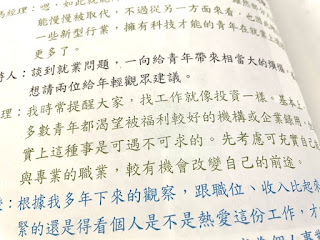 馬經理：嗯，如此就能
能慢慢被取代，不過從另一方面來看，也因此
一些新型行業，擁有科技才能的青年在就業上
更多了。
持人：談到就業問題，一向給青年帶來相當大的煩惱，
想請兩位給年輕觀眾建議。
理：我時常提醒大家，找工作就像投資一樣。基本上，
多數青年都渴望被福利較好的機構或企業歸用，
實上這種事是可遇不可求的。先考慮可充實自己
與專業的職業，較有機會改變自己的前途。
：根據我多年下來的觀察，跟職位、收入比起來
緊的還是得看個人是不是熱愛這份工作，才